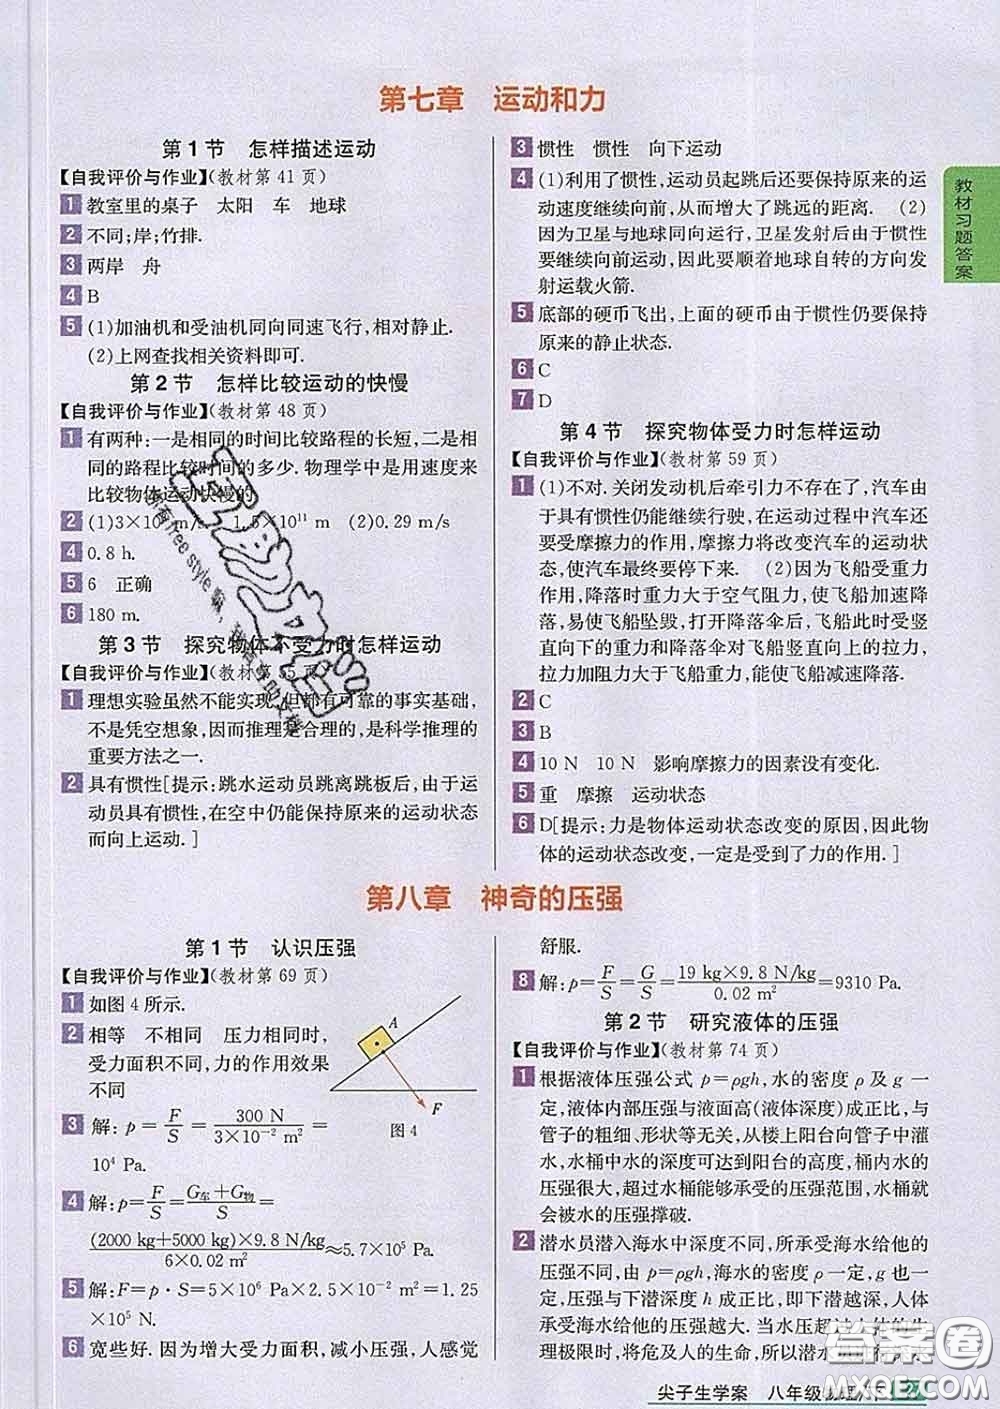 第七章 运动和力
第1节 怎样描述运动
【自我评价与作业】(教材第41页)
1 教室里的桌子 太阳 车 地球
2 不同;岸;竹排.
3 两岸 舟
4 B
5 (1)加油机和受油机同向同速飞行,相对静止.
(2)上网查找相关资料即可.
第2节 怎样比较运动的快慢
【自我评价与作业】(教材第48页)
1 有两种:一是相同的时间比较路程的长短,二是相
同的路程比较时间的多少.物理学中是用速度来
比较物体运动快慢的
2 (1)3×10 m/s 1.5×10¹¹ m (2)0.29 m/s
4 0.8 h.
5 6 正确
6 180 m.
第3节 探究物体不受力时怎样运动
【自我评价与作业】(教材第55页)
1 理想实验虽然不能实现,但都有可靠的事实基础,
不是凭空想象,因而推理是合理的,是科学推理的
重要方法之一.
2 具有惯性[提示:跳水运动员跳离跳板后,由于运
动员具有惯性,在空中仍能保持原来的运动状态
而向上运动.]
3 惯性 惯性 向下运动
4 (1)利用了惯性,运动员起跳后还要保持原来的运
动速度继续向前,从而增大了跳远的距离. (2)
因为卫星与地球同向运行,卫星发射后由于惯性
要继续向前运动,因此要顺着地球自转的方向发
射运载火箭.
5 底部的硬币飞出,上面的硬币由于惯性仍要保持
原来的静止状态.
6 C
7 D
第4节 探究物体受力时怎样运动
【自我评价与作业】(教材第59页)
1 (1)不对.关闭发动机后牵引力不存在了,汽车由
于具有惯性仍能继续行驶,在运动过程中汽车还
要受摩擦力的作用,摩擦力将改变汽车的运动
状态,使汽车最终要停下来. (2)因为飞船受重力
作用,降落时重力大于空气阻力,使飞船加速降
落,易使飞船坠毁,打开降落伞后,飞船此时受竖
直向下的重力和降落伞对飞船竖直向上的拉力,
拉力加阻力大于飞船重力,能使飞船减速降落.
2 C
3 B
4 10 N 10 N 影响摩擦力的因素没有变化.
5 重 摩擦 运动状态
6 D[提示:力是物体运动状态改变的原因,因此物
体的运动状态改变,一定是受到了力的作用.]
教材习题答案
第八章 神奇的压强
第1节 认识压强
【自我评价与作业】(教材第69页)
1 如图4所示.
2 相等 不相同 压力相同时,
受力面积不同,力的作用效果
不同
A
F
图4
3 解:p=F/S=300 N/(3×10⁻² m²)=
10⁴ Pa.
4 解:p=F/S=(G车+G物)/S=
(2000 kg+5000 kg)×9.8 N/kg/(6×0.02 m²)≈5.7×10⁵ Pa.
5 解:F=p·S=5×10⁶ Pa×2.5×10⁻² m²=1.25
×10⁵ N.
6 宽些好.因为增大受力面积,减小压强,人感觉
舒服.
8 解:p=F/S=G/S=19 kg×9.8 N/kg/0.02 m²=9310 Pa.
第2节 研究液体的压强
【自我评价与作业】(教材第74页)
1 根据液体压强公式 p=ρgh,水的密度 ρ 及 g 一
定,液体内部压强与液面高(液体深度)成正比,与
管子的粗细、形状等无关,从楼上阳台向管子中灌
水,水桶中水的深度可达到阳台的高度,桶内水的
压强很大,超过水桶能够承受的压强范围,水桶就
会被水的压强撑破.
2 潜水员潜入海水中深度不同,所承受海水给他的
压强不同,由 p=ρgh,海水的密度 ρ 一定,g 也一
定,压强与下潜深度 h 成正比,即下潜越深,人体
承受海水给他的压强越大.当水压超出人体的生
理极限时,将危及人的生命,所以潜水
尖子生学案 八年级物理(下) 27
答案卷
MXQE.COM